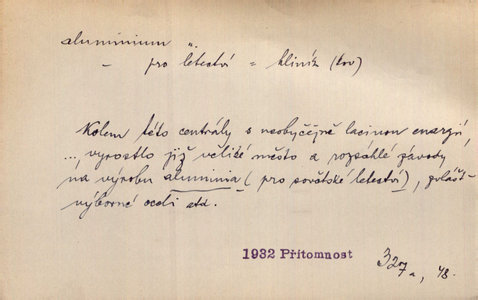 aluminium
— pro letectví = hliník (kov)
Kolem této centrály s neobyčejně lacinou energií,
..., vyrostlo již veliké město a rozsáhlé závody
na výrobu aluminia (pro sovětské letectví), zvlášť
výborné oceli atd.
1932 Přítomnost
48.